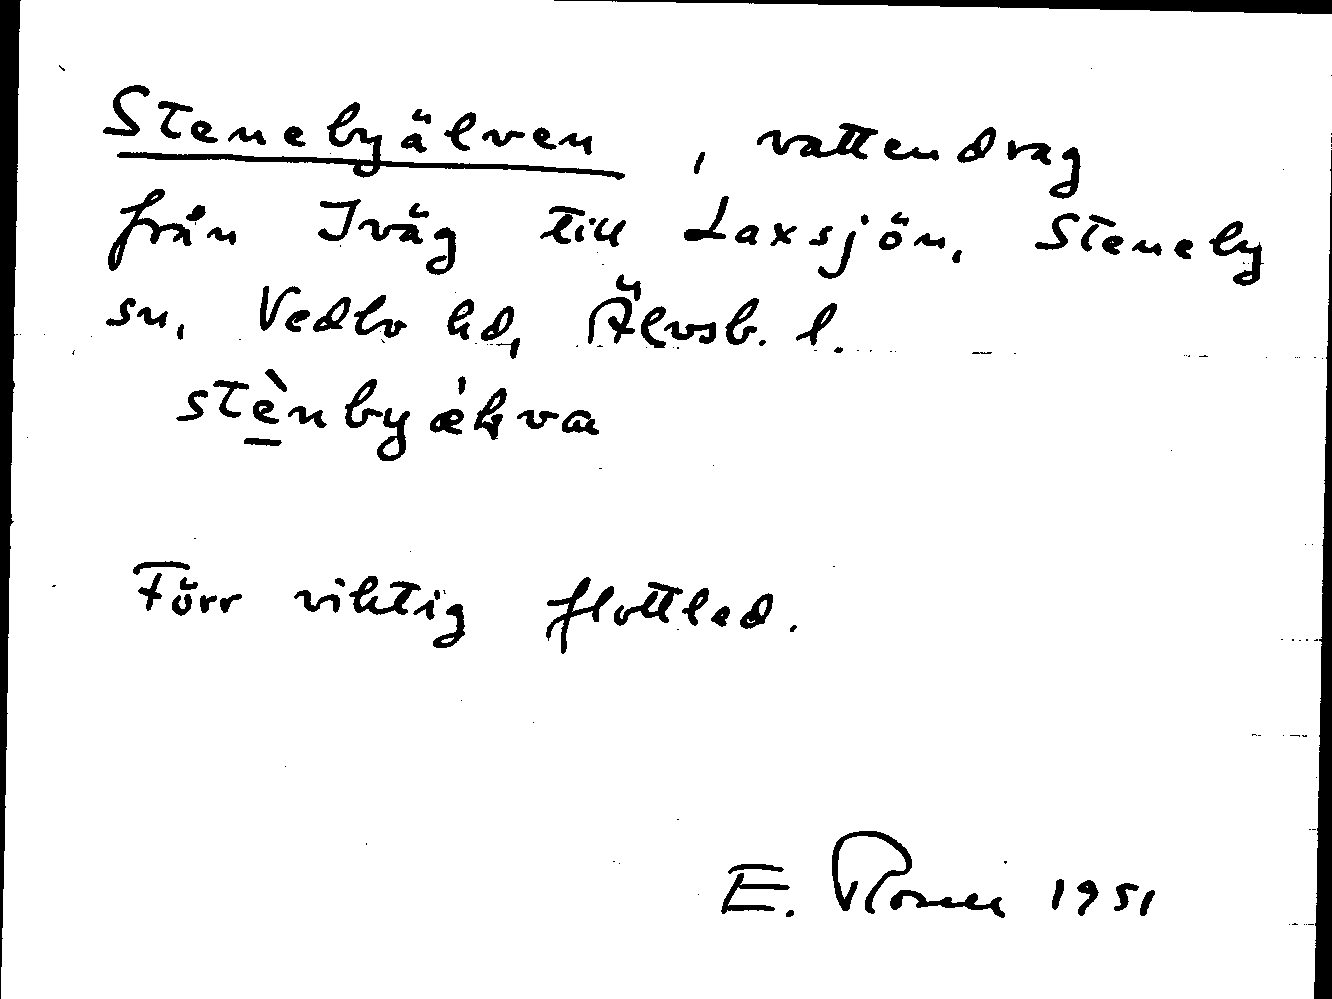 Stenebyälven, vattendrag
från Iväg till Laxsjön, Steneby
sn, Vedbo hd, Älvsb. l.
Förr viktig flottled.
E. 1951